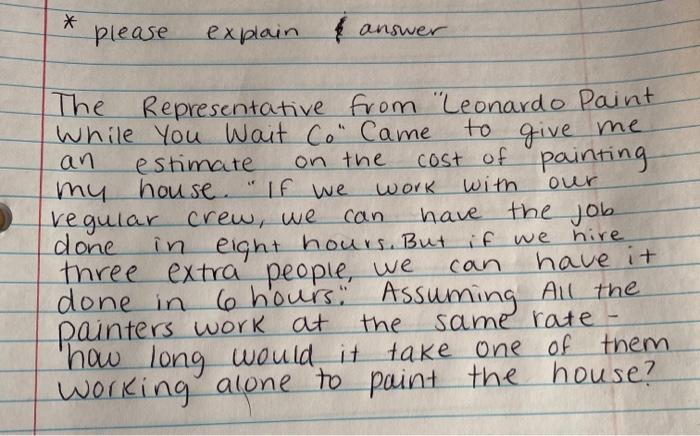 * please explain & answer
The Representative from "Leonardo Paint
While You Wait Co" Came to give me
an estimate on the cost of painting
my house. "If we work with our
regular crew, we can have the job
done in eight hours. But if we hire
three extra people, we can have it
done in 6 hours." Assuming All the
painters work at the same rate -
how long would it take one of them
working alone to paint the house?